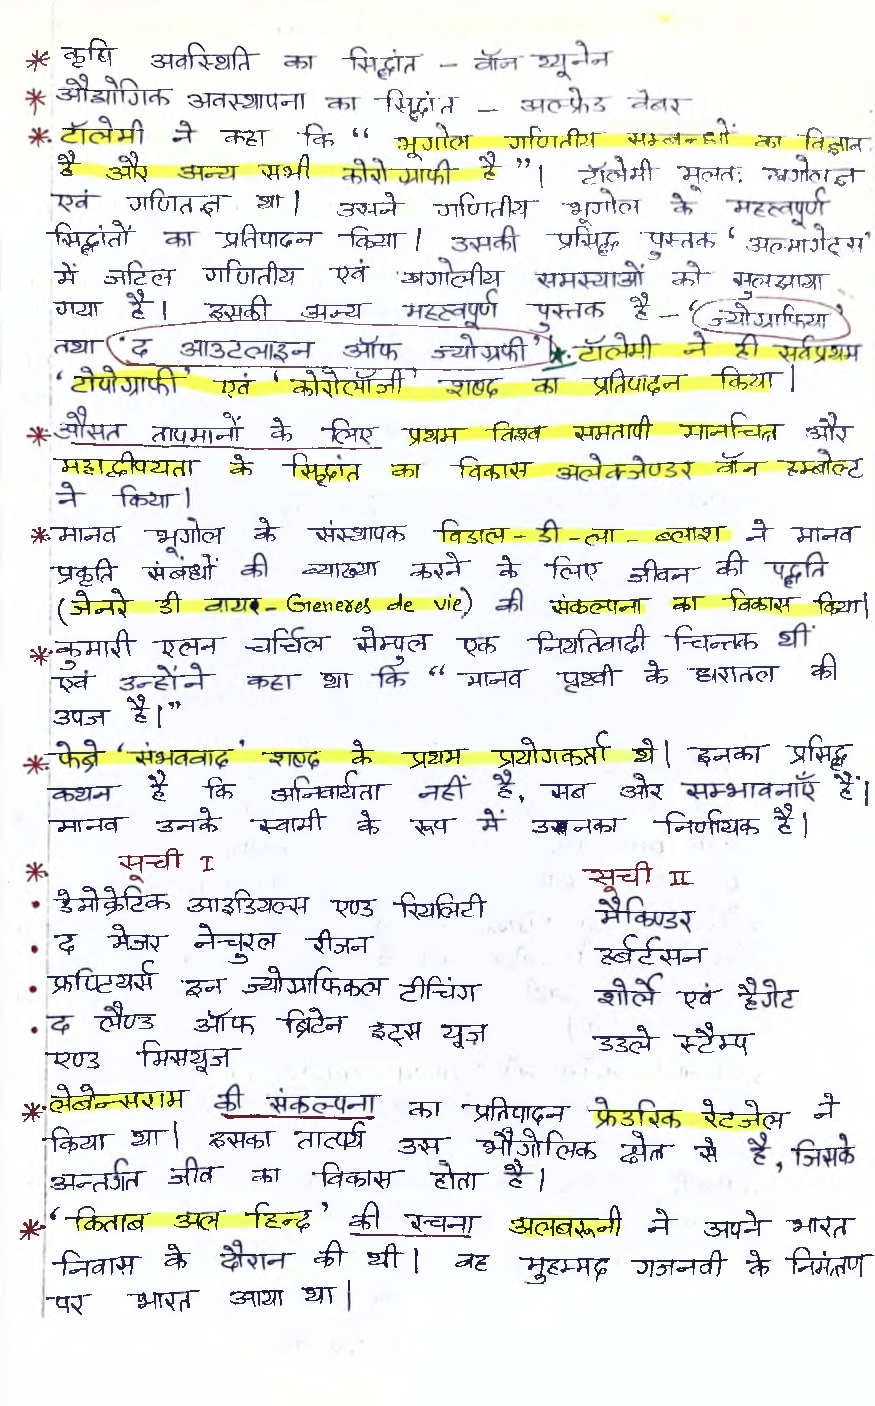 * कृषि अवस्थिति का सिद्धांत – वॉन थ्यूनेन
* औद्योगिक अवस्थापना का सिद्धांत – अल्फ्रेड वेबर
* टॉलेमी ने कहा कि “ भूगोल गणितीय सम्बन्धों का विज्ञान
है और अन्य सभी कोरोग्राफी है ”। टॉलेमी मूलतः खगोलज्ञ
एवं गणितज्ञ था। उसने गणितीय भूगोल के महत्वपूर्ण
सिद्धांतों का प्रतिपादन किया। उसकी प्रसिद्ध पुस्तक ‘ अल्मागेट्स’
में जटिल गणितीय एवं खगोलीय समस्याओं को सुलझाया
गया है। इसकी अन्य महत्वपूर्ण पुस्तक है – ‘ ज्योग्राफिया’
तथा ‘ द आउटलाइन ऑफ ज्योग्रफी ’। ★ टॉलेमी ने ही सर्वप्रथम
‘टोपोग्राफी’ एवं ‘ कोरोलॉजी’ शब्द का प्रतिपादन किया।
* औसत तापमानों के लिए प्रथम विश्व समतापी मानचित्र और
महाद्वीपयता के सिद्धांत का विकास अलेक्जेण्डर वॉन हम्बोल्ट
ने किया।
* मानव भूगोल के संस्थापक विडाल-डी-ला-ब्लाश ने मानव
प्रकृति संबंधों की व्याख्या करने के लिए जीवन की पद्धति
(जेनरे डी वायर – Generes de vie) की संकल्पना का विकास किया।
* कुमारी एलन चर्चिल सेम्पुल एक नियतिवादी चिन्तक थीं
एवं उन्होंने कहा था कि “ मानव पृथ्वी के धरातल की
उपज है।”
* फेब्रे ‘संभववाद’ शब्द के प्रथम प्रयोगकर्ता थे। इनका प्रसिद्ध
कथन है कि अनिवार्यता नहीं है, सब ओर सम्भावनाएँ हैं।
मानव उनके स्वामी के रूप में उनका निर्णायक है।
* सूची I सूची II
• डेमोक्रेटिक आइडियल्स एण्ड रियलिटी मैकिण्डर
• द मेजर नेचुरल रीजन हर्बर्टसन
• फ्रण्टियर्स इन ज्योग्राफिकल टीचिंग शोर्ले एवं हैगेट
• द लैण्ड ऑफ ब्रिटेन इट्स यूज़ डडले स्टैम्प
एण्ड मिसयूज
* लेबेन्सराम की संकल्पना का प्रतिपादन फ्रेडरिक रेटजेल ने
किया था। इसका तात्पर्य उस भौगोलिक क्षेत्र से है, जिसके
अन्तर्गत जीव का विकास होता है।
* ‘ किताब अल हिन्द ’ की रचना अलबरूनी ने अपने भारत
निवास के दौरान की थी। वह मुहम्मद गजनवी के निमंत्रण
पर भारत आया था।